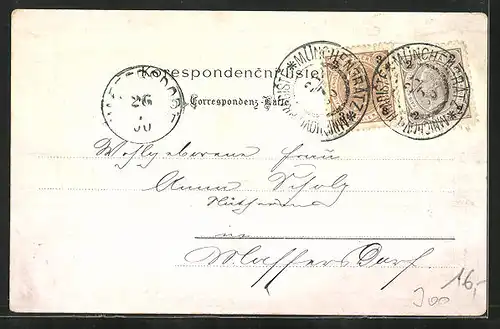 Korespondenční lístek
Correspondenz-Karte
MÜNCHENGRÄTZ
MNICHOVO HRADIŠTĚ
MÜNCHENGRÄTZ
MNICHOVO HRADIŠTĚ
2
2
2
26
Wohlgeborene Frau
Anna Scholz
in
Maffersdorf
16,-
300